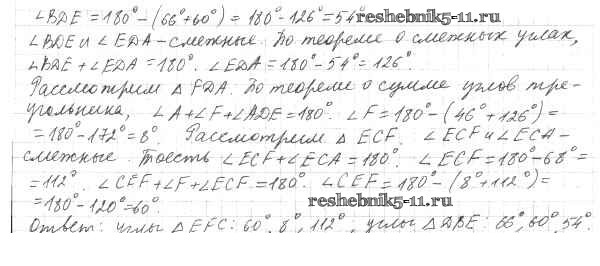 ∠BDE = 180° - (66° + 60°) = 180° - 126° = 54°
reshebnik5-11.ru
∠BDE и ∠EDA - смежные. По теореме о смежных углах,
∠BDE + ∠EDA = 180°. ∠EDA = 180° - 54° = 126°.
Рассмотрим △FDA. По теореме о сумме углов тре-
угольника, ∠A + ∠F + ∠ADE = 180°. ∠F = 180° - (46° + 126°) =
= 180° - 172° = 8°. Рассмотрим △ECF. ∠ECF и ∠ECA -
смежные. Тоесть ∠ECF + ∠ECA = 180°. ∠ECF = 180° - 68° =
= 112°. ∠CEF + ∠F + ∠ECF = 180°. ∠CEF = 180° - (8° + 112°) =
= 180° - 120° = 60°.
reshebnik5-11.ru
Ответ: углы △EFC: 60°, 8°, 112°, углы △DBE: 66°, 60°, 54°.